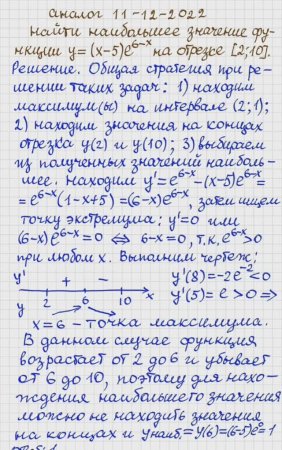 аналог 11-12-2022
найти наибольшее значение фу-
нкции y=(x-5)e^{6-x} на отрезке [2;10].
Решение. Общая стратегия при ре-
шении таких задач: 1) находим
максимум(ы) на интервале (2;1);
2) находим значения на концах
отрезка y(2) и y(10); 3) выбираем
из полученных значений наиболь-
шее. Находим y'=e^{6-x}-(x-5)e^{6-x}=
=e^{6-x}(1-x+5)=(6-x)e^{6-x}, затем ищем
точку экстремума: y'=0 или
(6-x)e^{6-x}=0 ⇔ 6-x=0, т.к. e^{6-x}>0
при любом x. Выполним чертеж:
y' + - y'(8)=-2e^{-2}<0
2 6 10 x y'(5)=e>0 ⇒
y
x=6 - точка максимума.
В данном случае функция
возрастает от 2 до 6 и убывает
от 6 до 10, поэтому для нахо-
ждения наибольшего значения
можно не находить значения
на концах и y наиб.=y(6)=(6-5)e^0=1